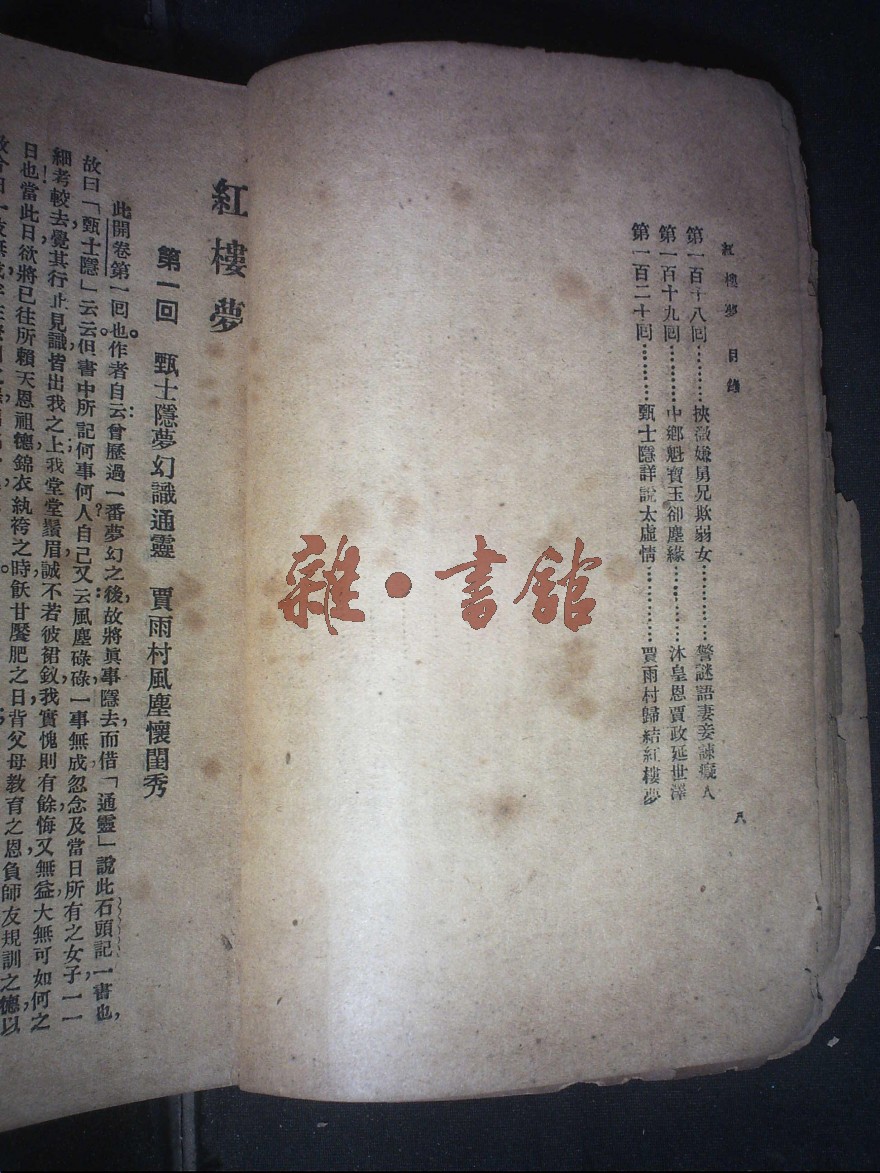 紅樓夢 目錄
第一百十八回………挾微嫌舅兄欺弱女…………警謎語妻妾諫癡人
第一百十九回………中鄉魁寶玉卻塵緣…………沐皇恩賈政延世澤
第一百二十回………甄士隱詳說太虛情…………賈雨村歸結紅樓夢
八
雜·書館
紅樓夢
第一回 甄士隱夢幻識通靈 賈雨村風塵懷閨秀
此開卷第一回也。作者自云:曾歷過一番夢幻之後,故將眞事隱去,而借「通靈」說此石頭記一書也,
故曰「甄士隱」云云。但書中所記何事何人?自己又云:風塵碌碌,一事無成,忽念及當日所有之女子,一一
細考較去,覺其行止見識皆出我之上;我堂堂鬚眉,誠不若彼裙釵;我實愧則有餘,悔又無益,大無可如何之
日也!當此日,欲將已往所賴天恩祖德,錦衣紈袴之時,飫甘饜肥之日,背父母教育之恩,負師友規訓之德,以